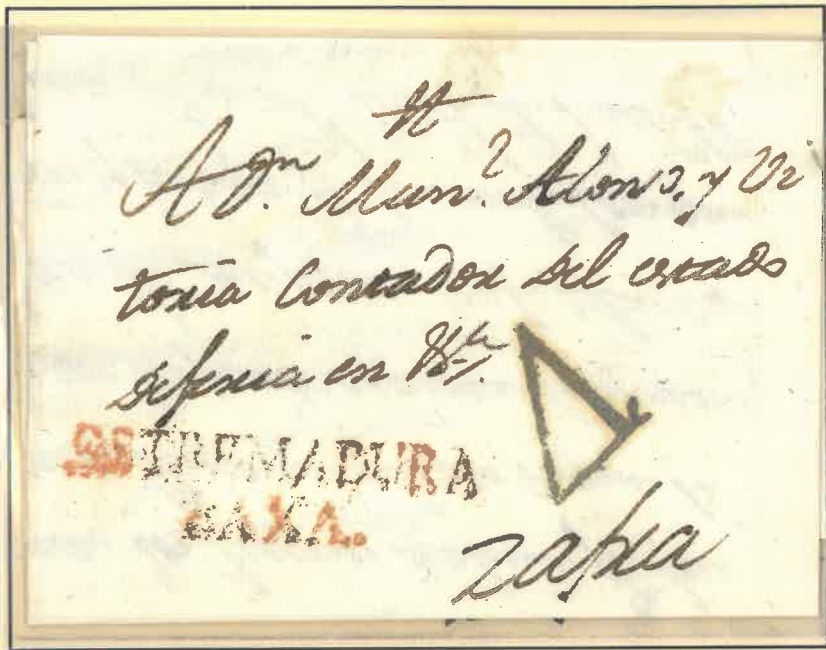 A Dn. Man.l Alonso, y Vi
toria Contador del estado
de feria en
ESTREMADURA
BAXA.
Zafra